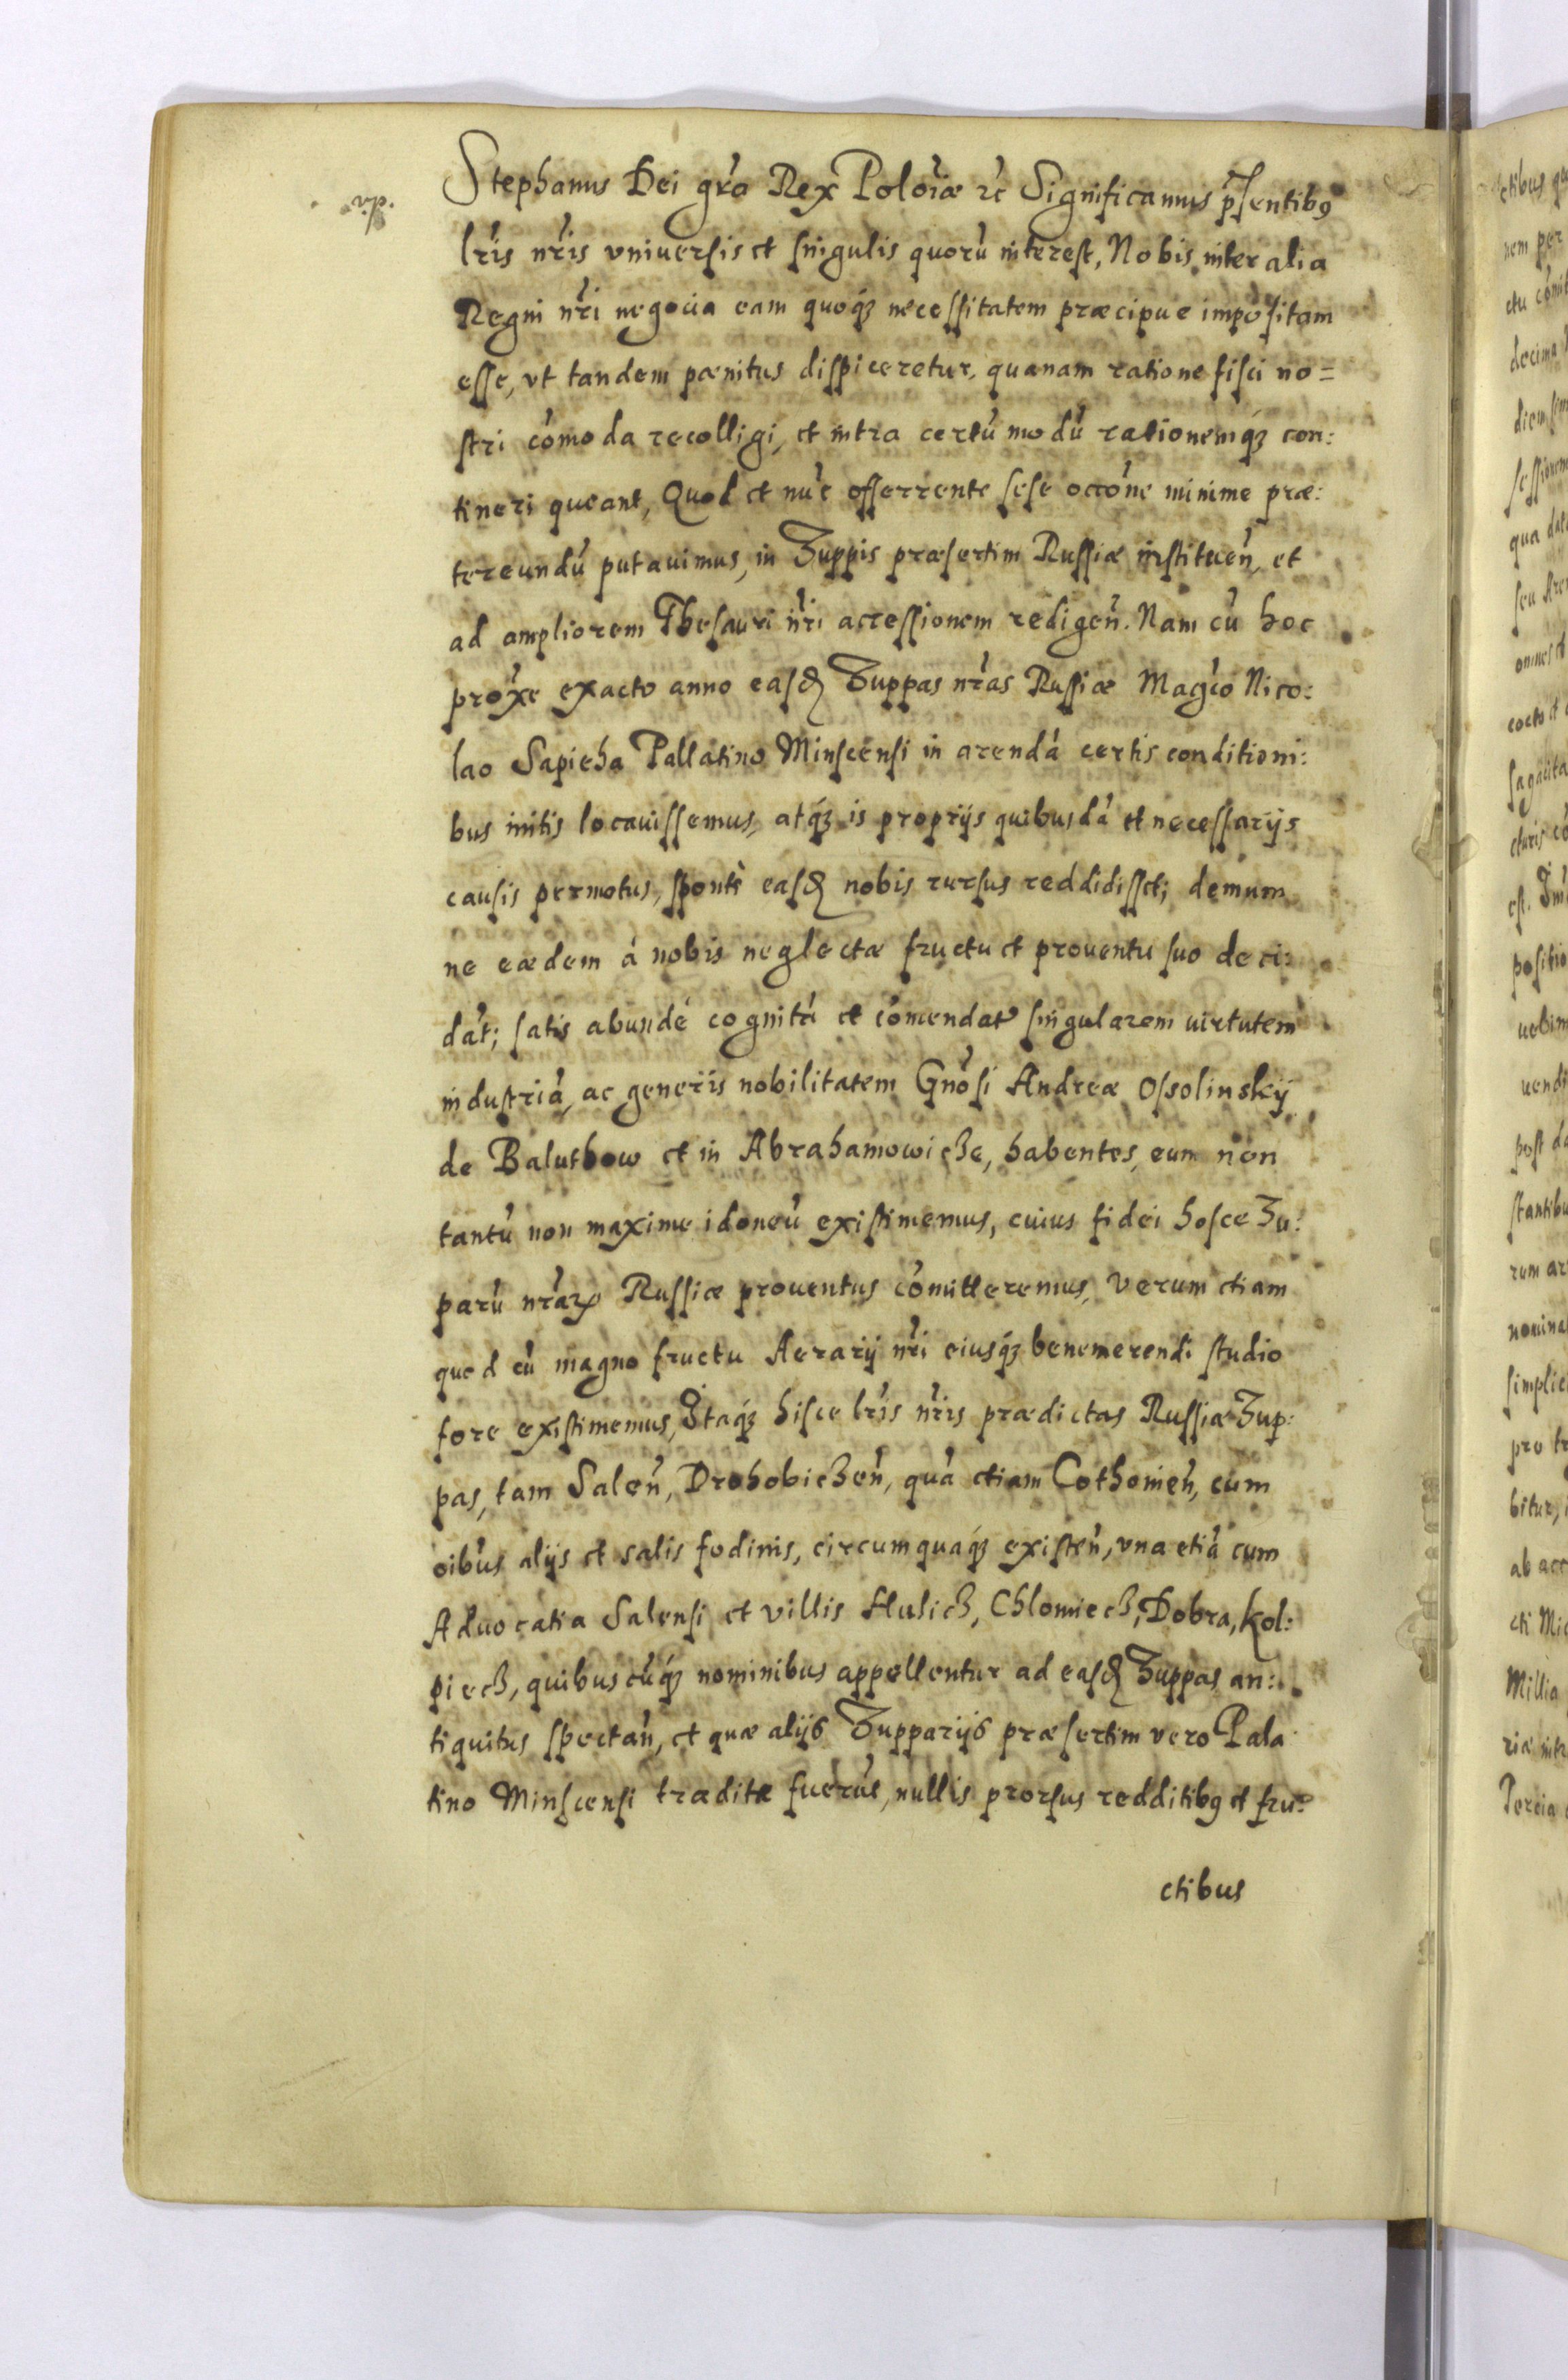 Stephanus Dei gr̃a Rex Polõiæ ꝛc̃ Significamus p̃sentibꝰ
lr̃is nr̃is vniuersis et singulis quorũ interest, Nobis inter alia
Regni nr̃i negocia eam quoqꝫ necessitatem præcipue impositam
esse, vt tandem pænitus dispiceretur, quanam ratione fisci no=
stri cõmoda recolligi, et intra certũ modũ rationemqꝫ con:
tineri queant, Quod et nũc offerrente sese occõne minime præ:
tereundũ putauimus, in Zuppis præsertim Russiæ instituen̄, et
ad ampliorem Thesauri nr̃i accessionem redigen̄. Nam cũ hoc
prox̃e exacto anno easd̃ Zuppas nr̃as Russiæ Mag̃co Nico:
lao Sapieha Pallatino Minscensi in arendã certis conditioni:
bus initis locauissemus, atqꝫ is proprijs quibusdã et necessarijs
causis permotus, spontè easd̃ nobis rursus reddidisset; demum
ne eædem á nobis neglectæ fructu et prouentu suo deci:
dãt; satis abundé cognitã et cõmendat̃ singularem uirtutem
industriã, ac generis nobilitatem Gnõsi Andreæ Ossolinskÿ
de Baluthow et in Abrahamowicze, habentes, eum non
tantũ non maxime idoneũ existimemus, cuius fidei hosce Zu:
parũ nr̃aꝝ Russiæ prouentus cõmitteremus, verum etiam
quod cũ magno fructu Aerarij nr̃i eiusqꝫ benemerendi studio
fore existimemus, Itaqꝫ hisce lr̃is nr̃is prædictas Russiæ Zup:
pas, tam Salen̄, Drohobiczen̄, quã etiam Cothonien̄, cum
oĩbus alijs et salis fodinis, circumquaqꝫ existen̄, vna etiã cum
Aduocatia Salensi et villis Hulicz, Chlomiecz, Dobra, Kol:
piecz, quibuscũqꝫ nominibus appellentur ad easd̃ Zuppas an:
tiquitus spectan̄, et quæ alijs Zupparijs præsertim vero Pala
tino Minscensi traditæ fuerũt, nullis prorsus redditibꝰ et fru:
ctibus